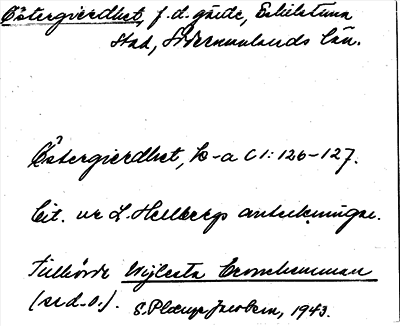 Östergierdhet, f.d. gärde, Eskilstuna
Stad, Södermanlands län.
Östergierdhet, b-a C1:126-127.
Cit. ur L. Hellbergs anteckningar.
Tillhörde Wijlesta Cronohemman
(se d.o.). E. Plæup-Jacobsen, 1943.